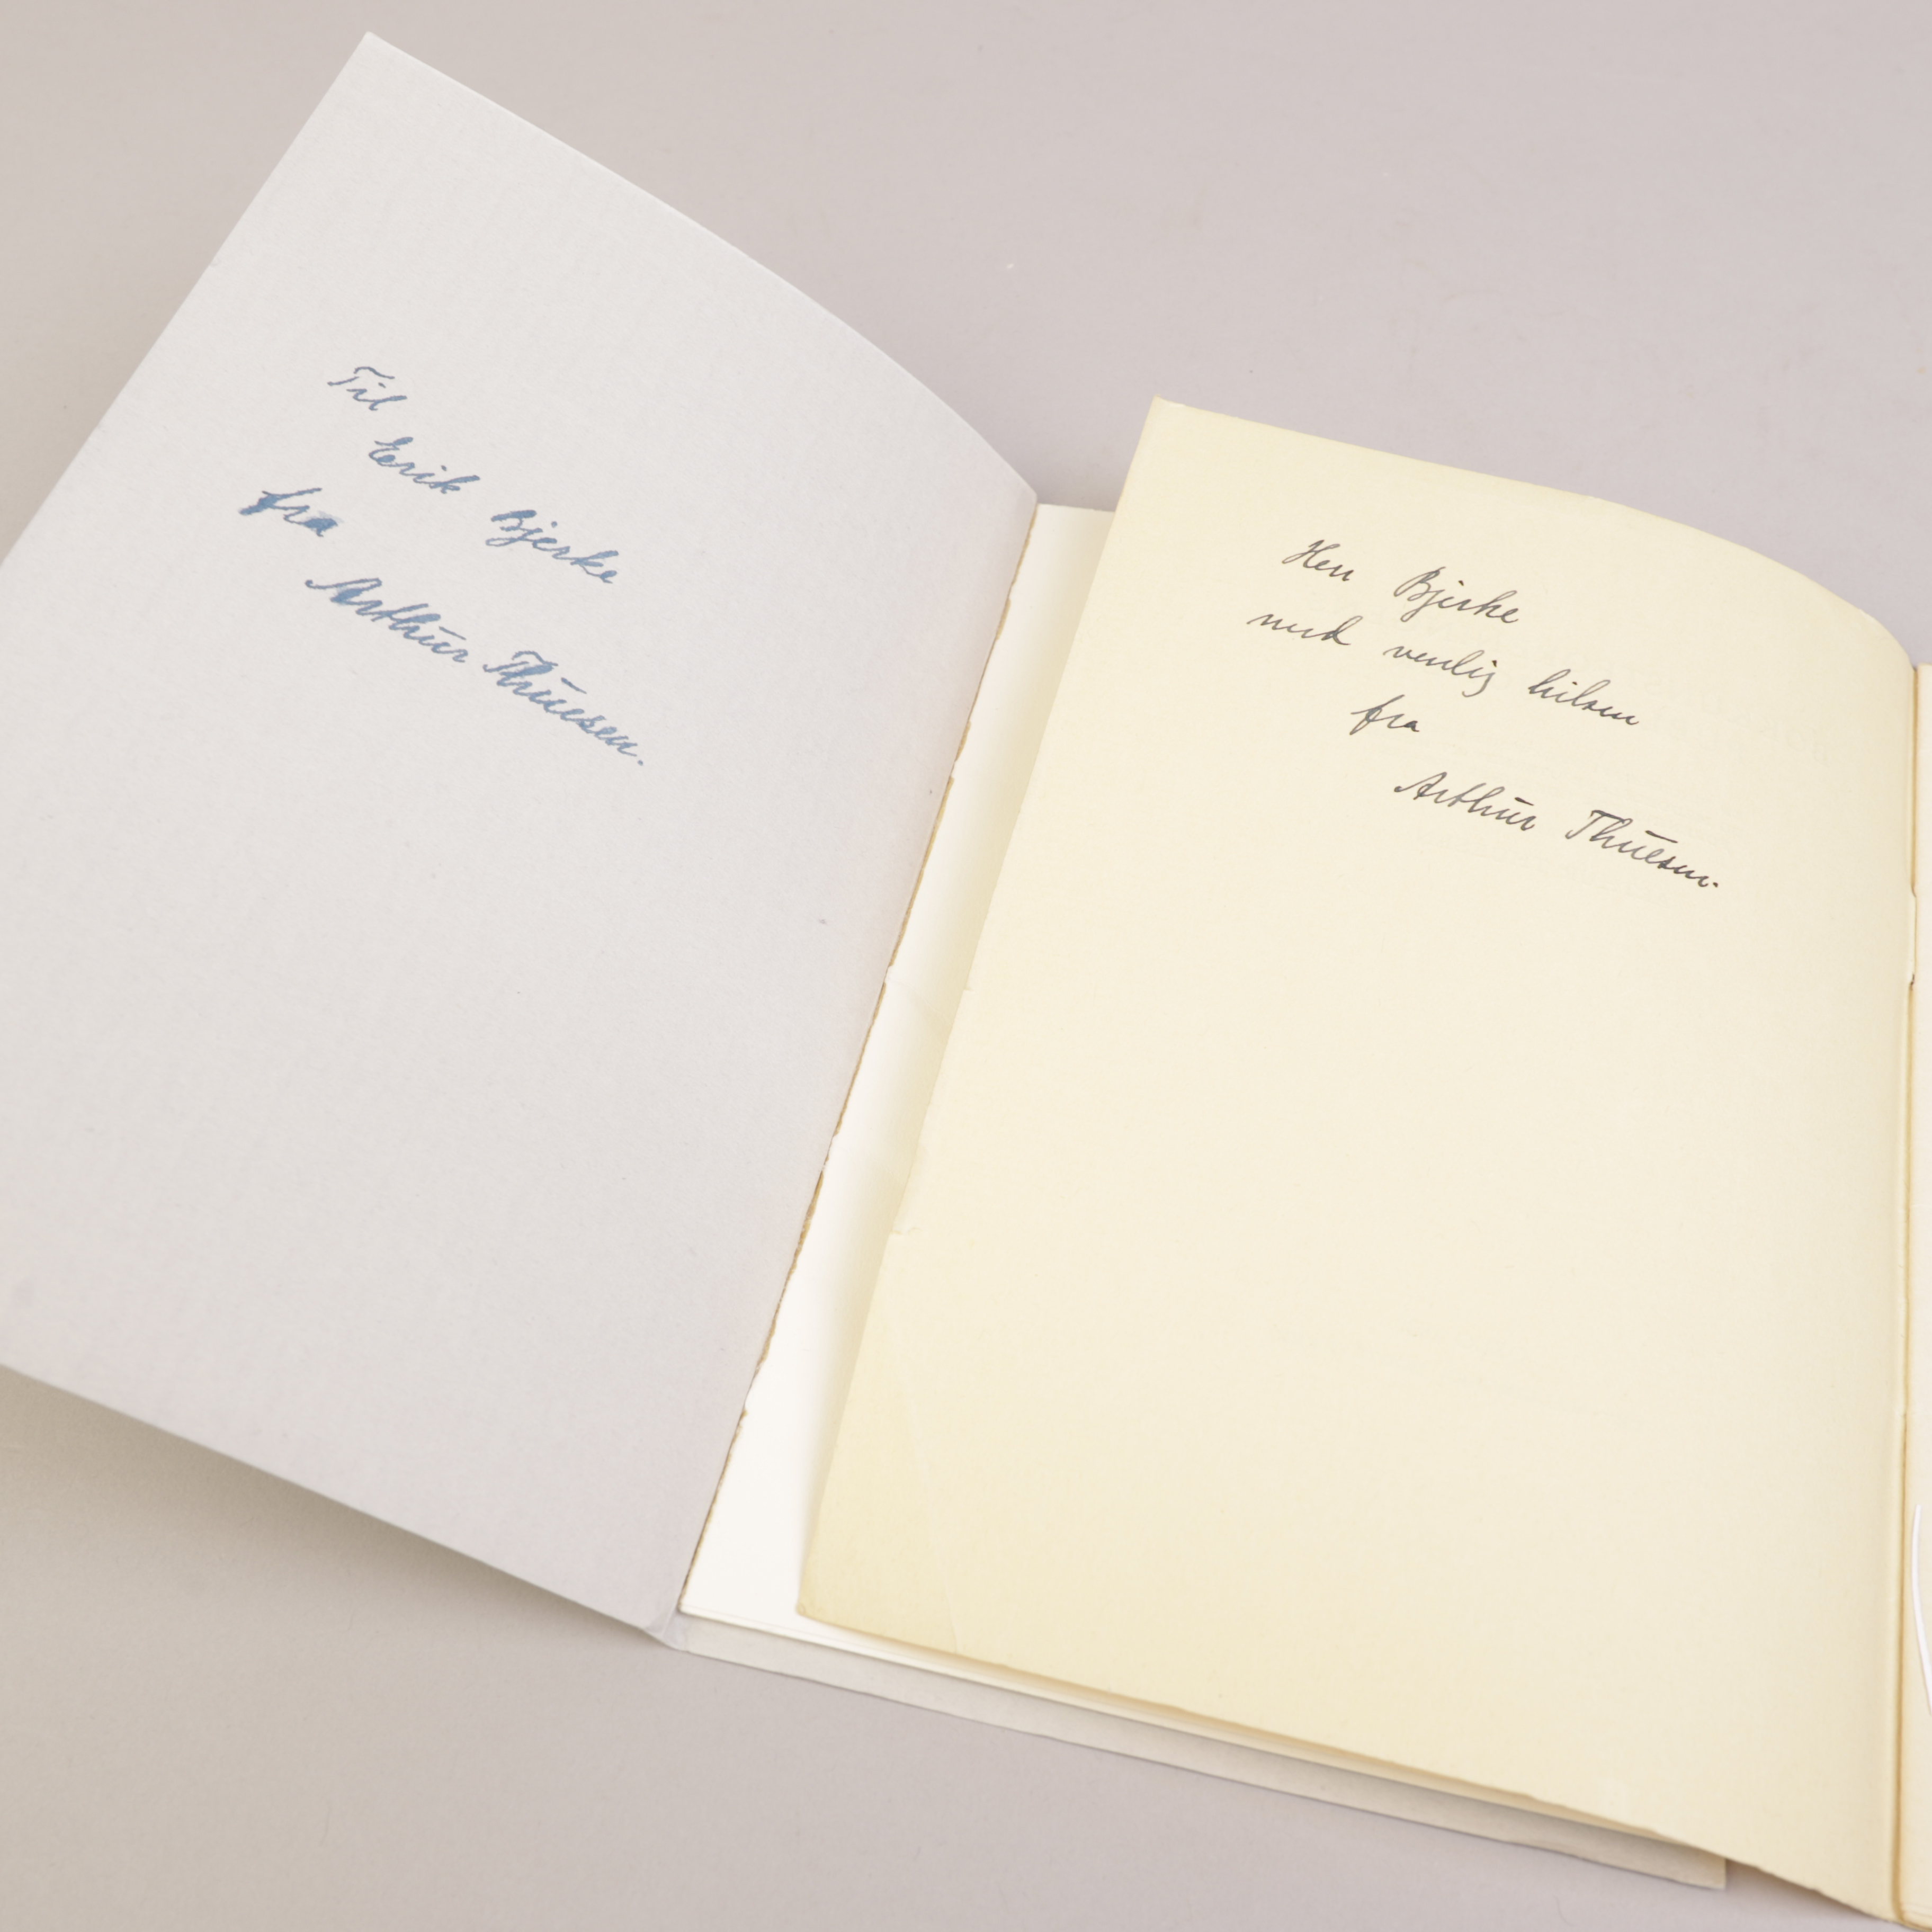 Til
Erik Bjerke
fra
Arthur Thuesen.
Herr Bjerke
med venlig hilsen
fra
Arthur Thuesen.